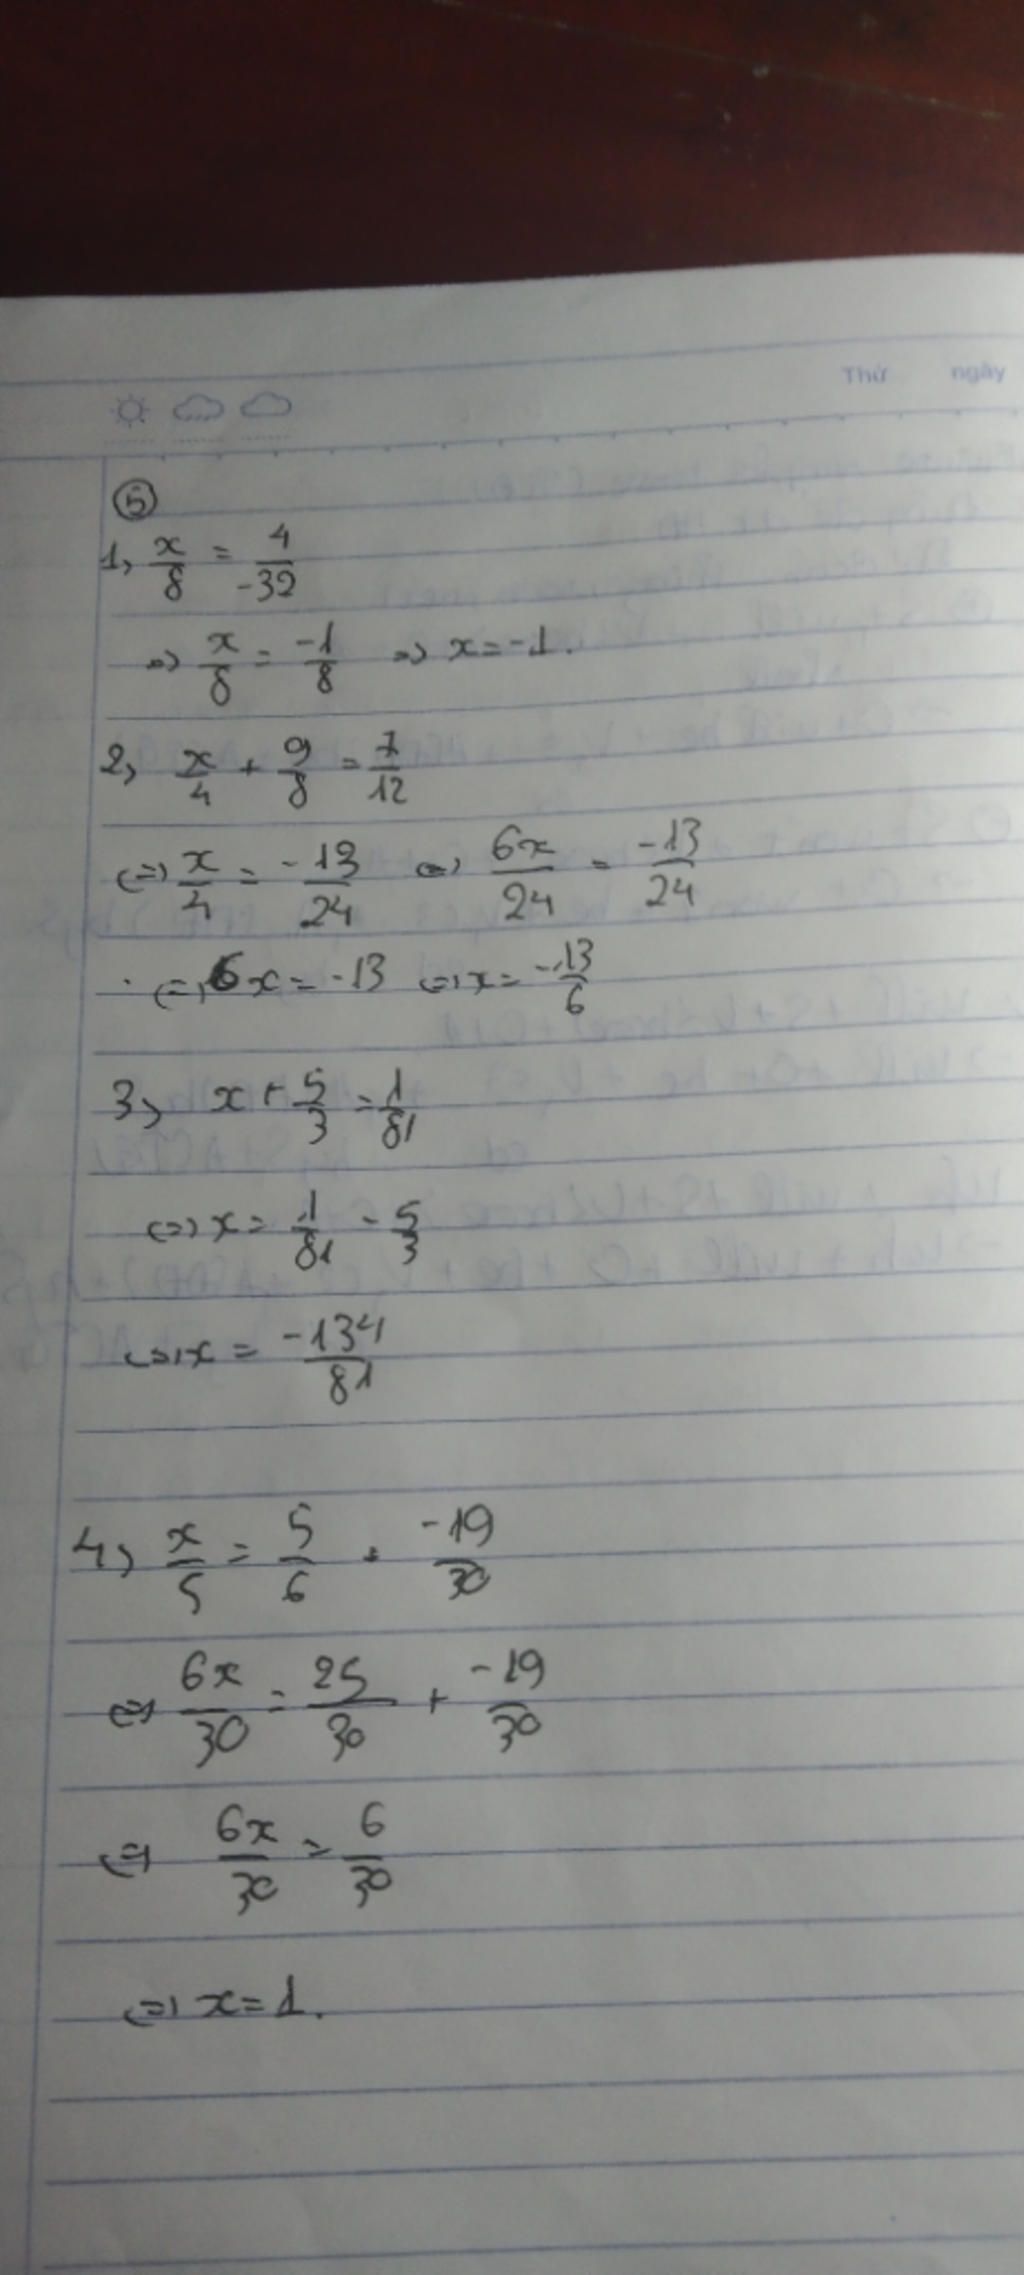 Thứ ngày
⑤
1, x/8 = 4/-32
=> x/8 = -1/8 => x = -1.
2, x/4 + 9/8 = 7/12
<=> x/4 = -13/24 <=> 6x/24 = -13/24
<=> 6x = -13 <=> x = -13/6
3, x + 5/3 = 1/81
<=> x = 1/81 - 5/3
<=> x = -134/81
4, x/5 = 5/6 + -19/30
<=> 6x/30 = 25/30 + -19/30
<=> 6x/30 = 6/30
<=> x = 1.